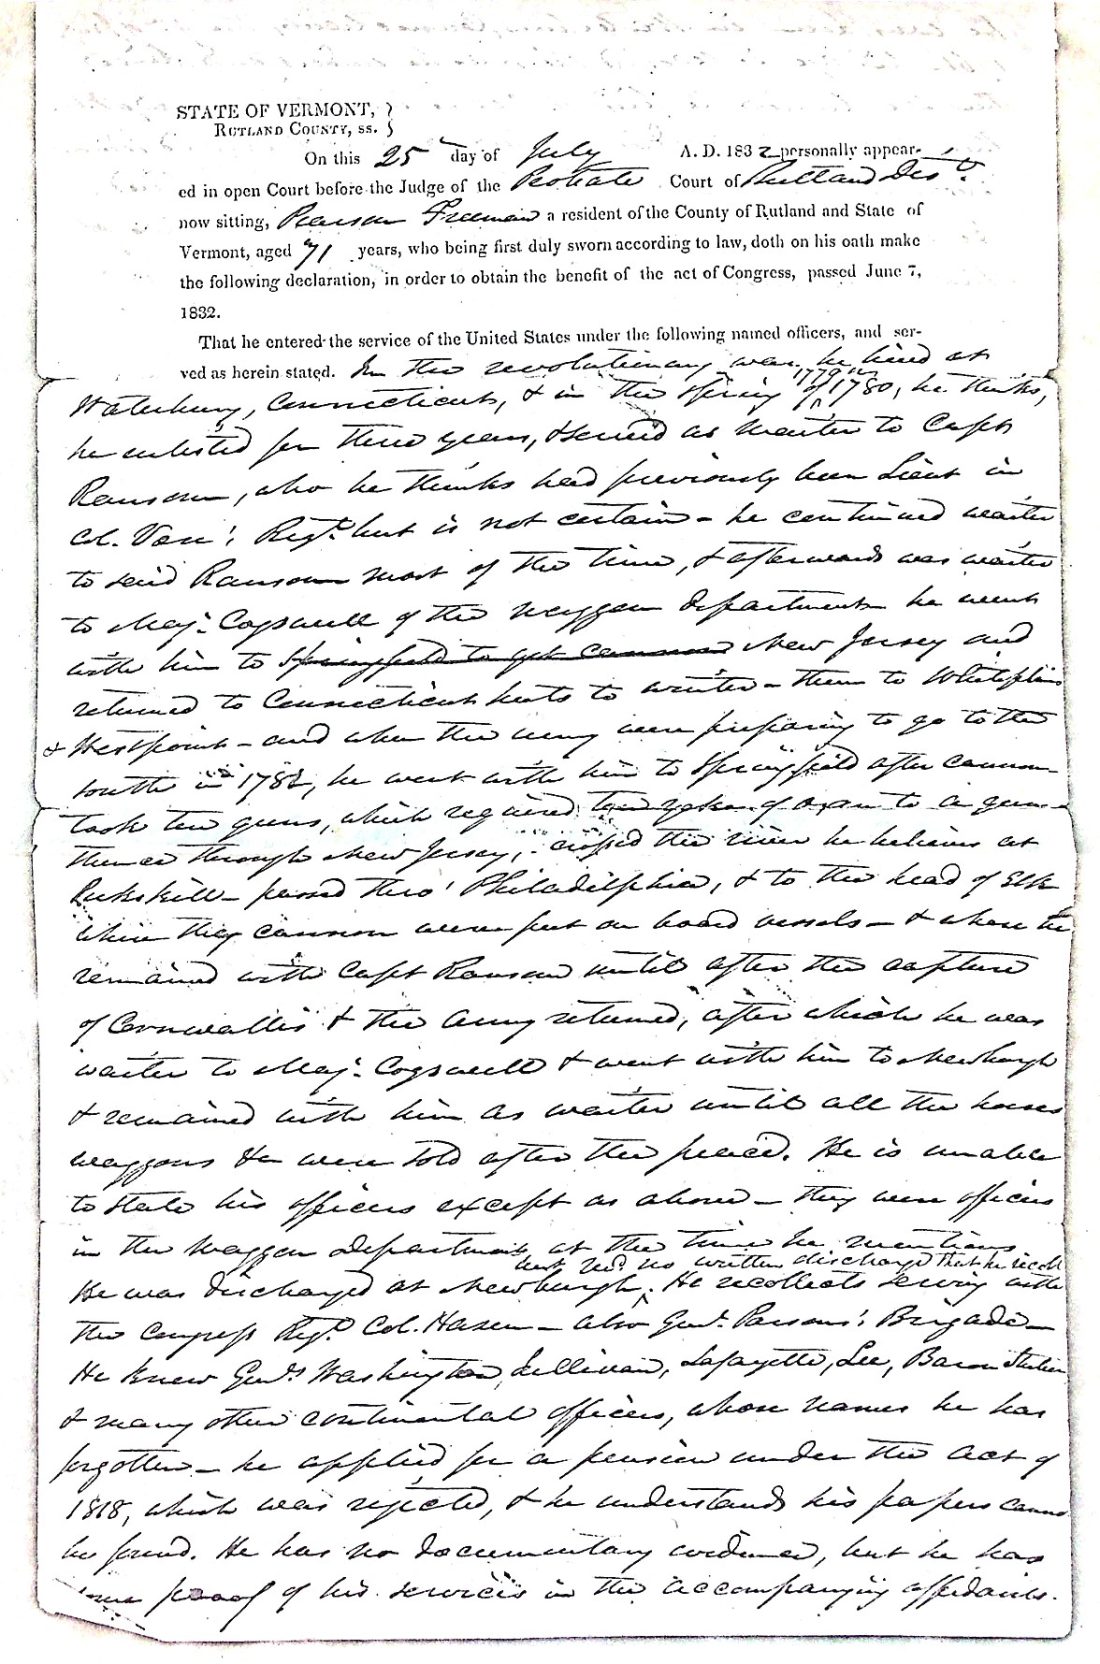 STATE OF VERMONT, }
RUTLAND COUNTY, SS. }
On this 25 day of July A. D. 1832 personally appear-
ed in open Court before the Judge of the Probate Court of Rutland Dist.
now sitting, Pearson Freeman a resident of the County of Rutland and State of
Vermont, aged 71 years, who being first duly sworn according to law, doth on his oath make
the following declaration, in order to obtain the benefit of the act of Congress, passed June 7,
1832.
That he entered the service of the United States under the following named officers, and ser-
ved as herein stated. In the revolutionary war he lived at
1779 or
Waterbury, Connecticut, & in the Spring of 1780, he thinks,
he enlisted for three years, & served as waiter to Capt
Ransom, who he thinks had previously been Lieut in
Col. Regt. but is not certain - he continued waiter
to said Ransom most of the time, & afterwards was waiter
to Maj. Cogswell of the waggon department he went
with him to Springfield to get cannon New Jersey and
returned to Connecticut huts to winter - then to Whiteplains
& Westpoint - and when the army were preparing to go to the
south in 1782, he went with him to Springfield after cannon
took ten guns, which required yoke of oxen to a gun -
thence through New Jersey, crossed the river he believes at
Peekskill - passed thro' Philadelphia, & to the head of Elk
where they cannon were put on board vessels - & where he
remained with Capt Ransom until after the capture
of Cornwallis & the Army returned, after which he was
waiter to Maj. Cogswell & went with him to Newburgh
& remained with him as waiter until all the horses
waggons &c were sold after the peace. He is unable
to state his officers except as above - they were officers
in the waggon department at the time he mentions
but no written discharge that he recoll
He was discharged at Newburgh. He recollects serving with
the Congress Regt. Col. Hazen - also Genl. Parsons' Brigade -
He knew Genls Washington, Sullivan, Lafayette, Lee, Baron Steuben
& many other continental officers, whose names he has
forgotten - he applied for a pension under the act of
1818, which was rejected, & he understands his papers cannot
be found. He has no documentary evidence, but he has
some proof of his services in the accompanying affidavits.